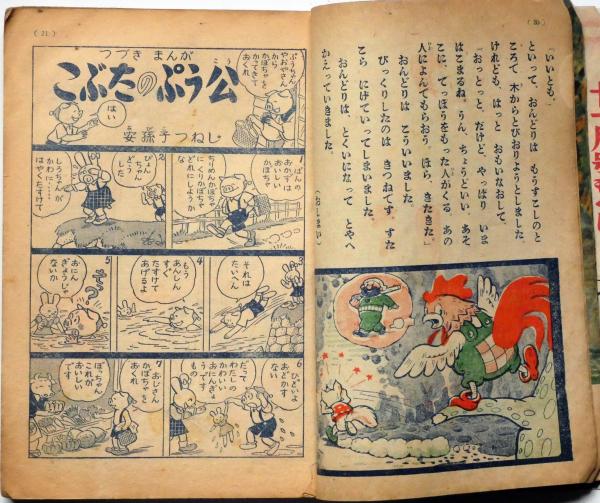 (20)
「いいとも。」
といって、おんどりは もうすこしのと
ころで 木からとびおりようとしました。
けれども、はっと おもいなおして
「おっとっと、だけど、やっぱり いま
はこまるね。うん、ちょうどいい、あそ
こに、てっぽうをもった人がくる。あの
人によんでもらおう。ほら、きたきた。」
おんどりは こういいました。
びっくりしたのは きつねです すた
こら にげていってしまいました。
おんどりは、とくいになって とやへ
かえっていきました。
(おしまい)
(21)
つづき まんが
こぶたのぷう公
こう
安孫子つねじ
ぷうちゃん
やおやさん
から
かぼちゃを
かってきて
おくれ
はい
1
ばんの
おかずは
おいしい
かぼちゃ
ちりめんかぼちゃ
にくりかぼちゃ
どれにしようか
な
2
ぴょん
ちゃん
どう
した
しろちゃんが
かわに……
はやくたすけて
3
それは
たいへん
4
もう
あんしん
すぐ
たすけて
あげるよ
5
おにん
ぎょうじゃ
ないか
6
ひどいよ
おどかすな
い
だって
わたしの
かわいい
おにんぎょ
うですもの
7
おじさん
かぼちゃを
おくれ
ぼっちゃん
これが
おいしい
です
十一月号